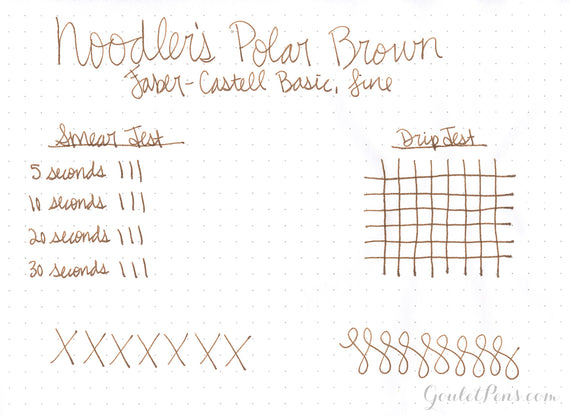 Noodler's Polar Brown
Faber-Castell Basic, fine
Smear Test
5 seconds
10 seconds
20 seconds
30 seconds
Drip Test
XXXXXXX
GouletPens.com